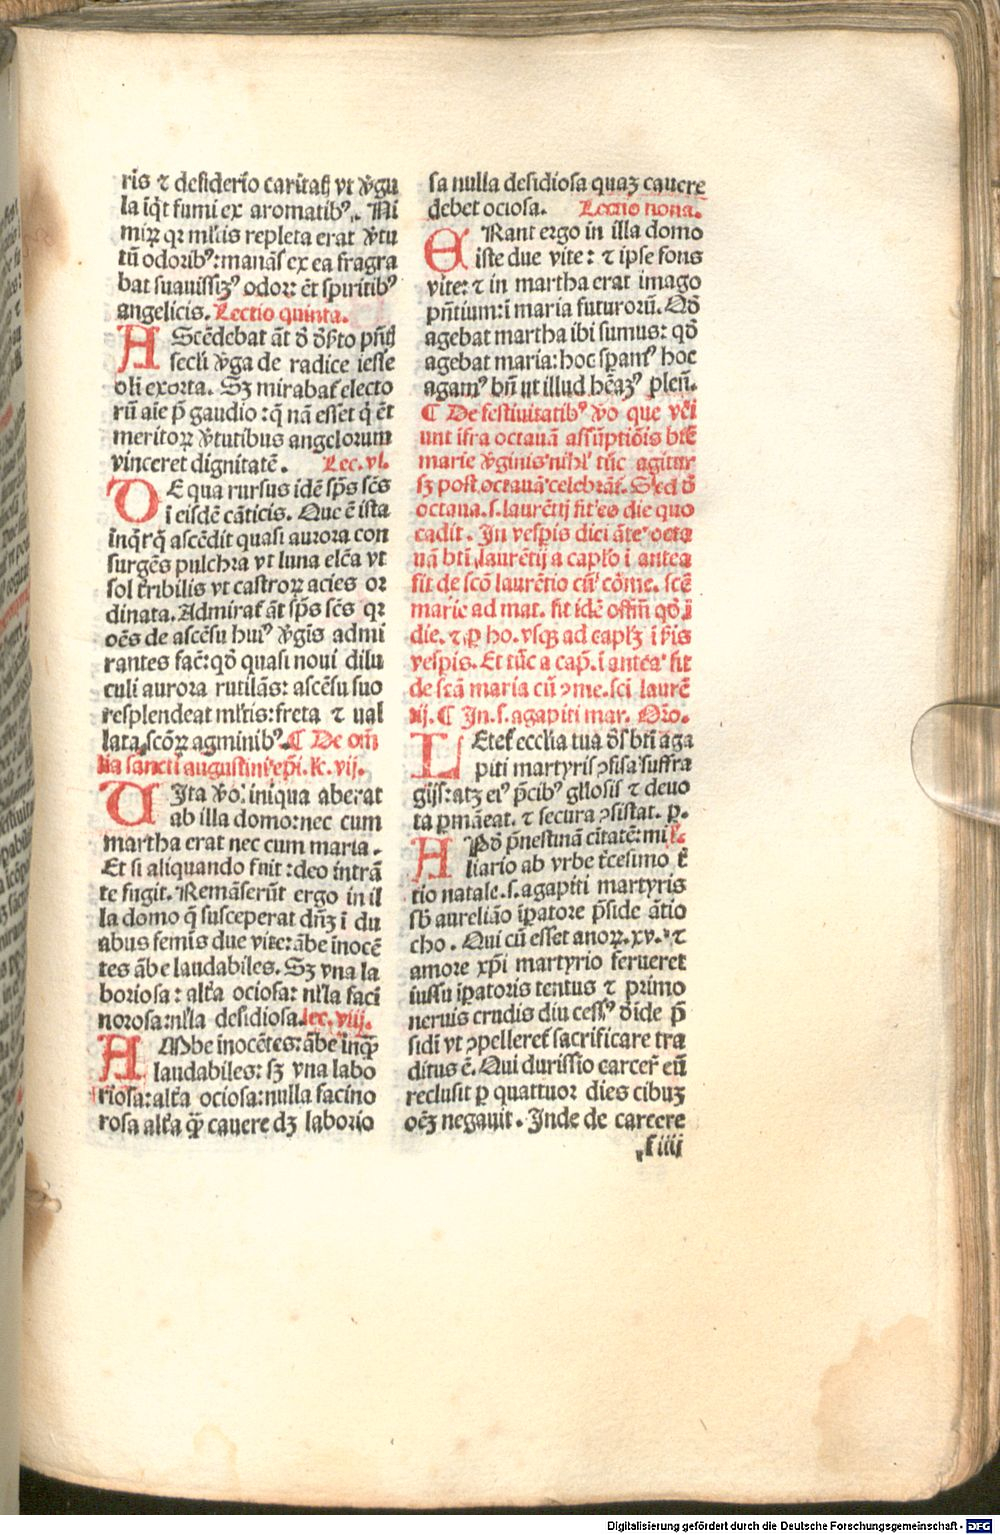 ris ⁊ desiderio caritatꝭ vt v̄gu
la inq̇t fumi ex aromatibꝰ. Ni
miꝝ qꝛ mltis repleta erat v̄tu
tū odoribꝰ: manās ex ea fragra
bat suauissimꝰ odor: ēt spiritibꝰ
angelicis. Lectio quinta.
AScēdebat āt d̄ dsto pn̄tꝭ
secli v̄ga de radice iesse
oli exorta. Sꝫ mirabat electo
rū aie p̄ gaudio: q̇ nā esset q̇ ēt
meritoꝝ v̄tutibus angelorum
vinceret dignitatē. Lec. vi.
DE qua rursus idē sp̄s scēs
i eisdē cāticis. Que ē ista
inq̇t q̇ ascēdit quasi aurora con
surgēs pulchra vt luna elcā vt
sol tribilis vt castroꝝ acies or
dinata. Admirat āt sp̄s scēs qꝛ
oēs de ascēsu huiꝰ v̄gis admi
rantes fac: qd̄ quasi noui dilu
culi aurora rutilās: ascēsu suo
resplendeat mltis: freta ⁊ ual
lata scōꝝ agminibꝰ. ¶ De om̄
lia sancti augustini ep̄i. lc. vij.
UIta v̄o iniqua aberat
ab illa domo: nec cum
martha erat nec cum maria.
Et si aliquando fuit: deo intrā
te fugit. Remāserūt ergo in il
la domo q̄ susceperat dn̄ꝫ ī du
abus femīs due vite: ābe inocē
tes ābe laudabiles. Sꝫ vna la
boriosa: altā ociosa: nlla faci
norosa: nlla desidiosa. lec. viij.
AMbe inocētes: ābe inq̄
laudabiles: sꝫ vna labo
riosa: altā ociosa: nulla facino
rosa altā q̄ꝫ cauere dꝫ laborio
sa nulla desidiosa quaꝫ cauere
debet ociosa. Lectio nona.
ERant ergo in illa domo
iste due vite: ⁊ ipse fons
vite: ⁊ in martha erat imago
pn̄tium: ī maria futurorū. Qd̄
agebat martha ibi sumus: qd̄
agebat maria: hoc speramꝰ hoc
agamꝰ bn̄ ut illud hēaꝫꝰ plen̄.
¶ De festiuitatibꝰ v̄o que vēi
unt ifra octauā assūptiōis btē
marie v̄ginis nihl tūc agitur
sꝫ post octauā celebrāt. Sed d̄
octaua. s. laurētij fit eo die quo
cadit. In vespis dici āte octa
uā bti laurētij a caplo ī antea
fit de scō laurētio cū cōme. scē
marie ad mat. fit idē officī qd̄ ī
die. ⁊ ꝑ ho. vsqꝫ ad caplꝫ ī scdis
vespis. Et tūc a cap. ī antea fit
de scā maria cū ꝯme. sci laurē
tij. ¶ In. s. agapiti mar. Oro.
LEtet ecclia tua d̄s bti aga
piti martyris ꝯfisa suffra
gijs: atꝫ eiꝰ p̄cibꝰ gl̄osis ⁊ deuo
ta ꝑmāeat. ⁊ secura ꝯsistat. ꝑ.
APd̄ p̄nestinā ciuitatē: mi l.
liario ab vrbe tcesimo ter
tio natale. s. agapiti martyris
sb aureliāo iꝑatore p̄side ātio
cho. Qui cū esset anoꝝ. xv. ⁊
amore xp̄i martyrio ferueret
iussu iꝑatoris tentus ⁊ primo
neruis crudis diu cessꝰ d̄ide p̄
sidi vt ꝯpelleret sacrificare tra
ditus ē. Qui durissio carceri eū
reclusit ꝑ quattuor dies cibuꝫ
oēꝫ negauit. Inde de carcere
f iiij
Digitalisierung gefördert durch die Deutsche Forschungsgemeinschaft - DFG